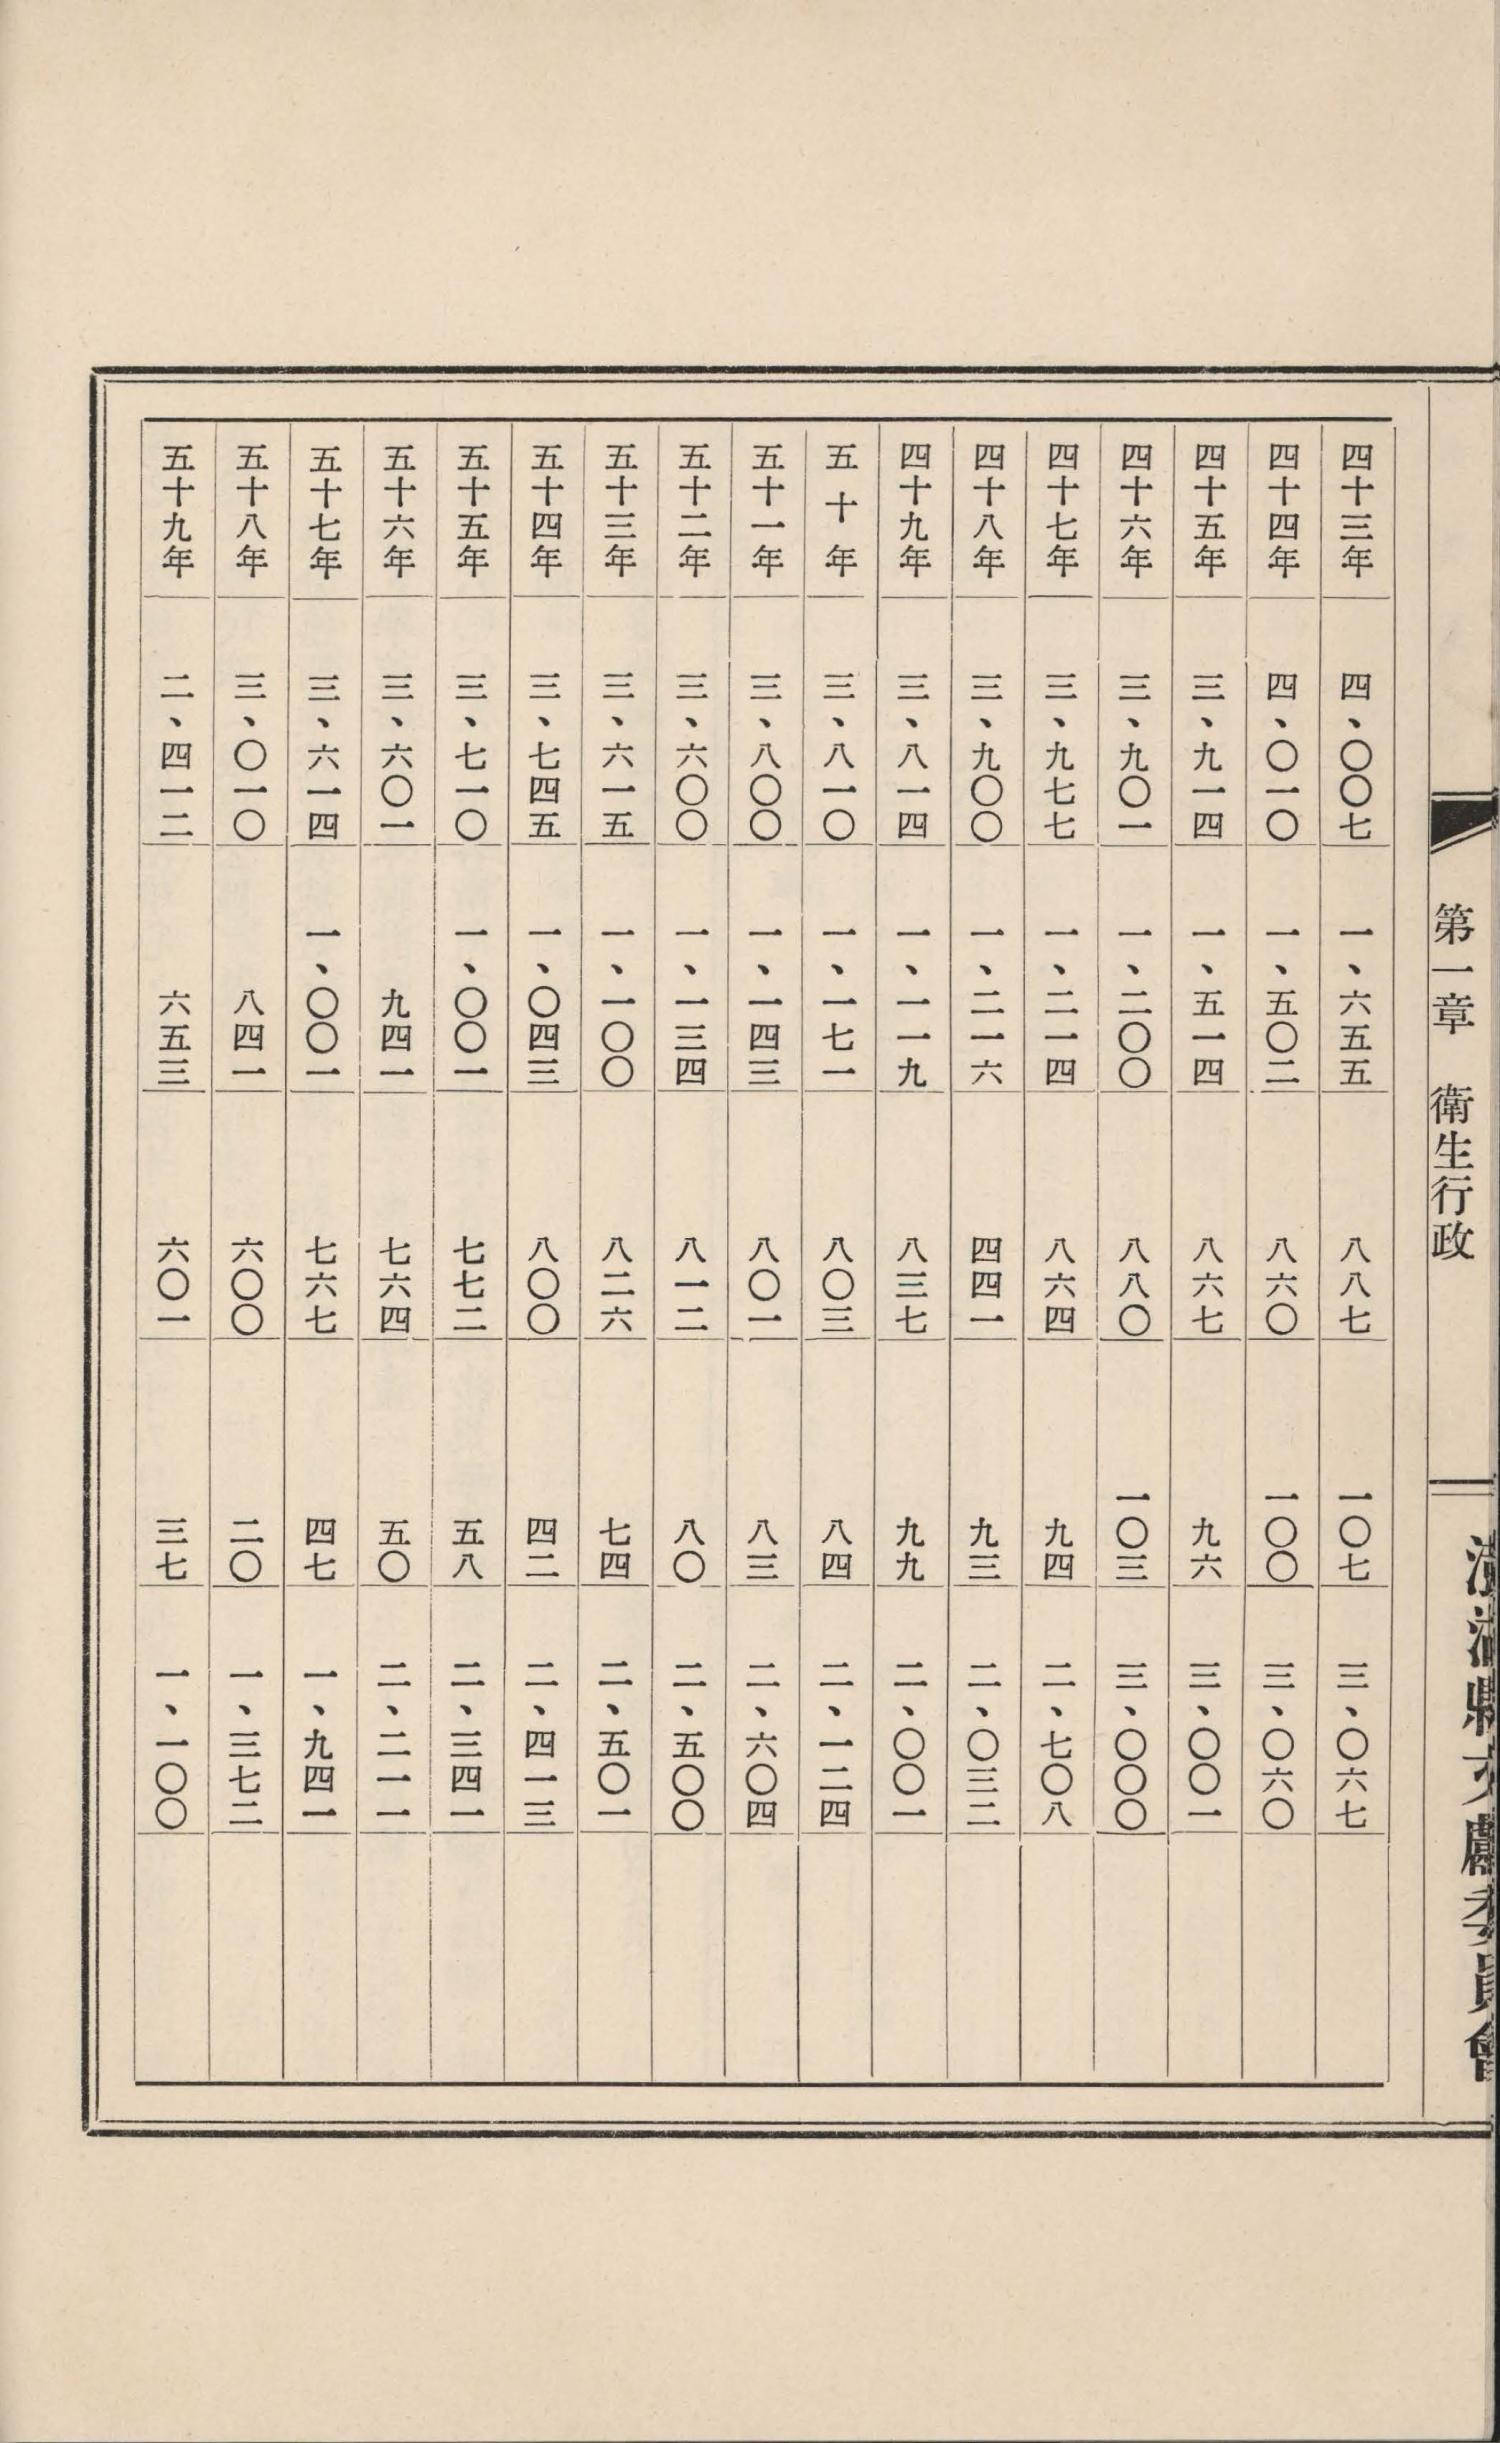 第一章　衛生行政
澎湖縣文獻委員會
四十三年　四、〇〇七　一、六五五　八八七　一〇七　三、〇六七
四十四年　四、〇一〇　一、五〇二　八六〇　一〇〇　三、〇六〇
四十五年　三、九一四　一、五一四　八六七　九六　三、〇〇一
四十六年　三、九〇一　一、二〇〇　八八〇　一〇三　三、〇〇〇
四十七年　三、九七七　一、二一四　八六四　九四　二、七〇八
四十八年　三、九〇〇　一、二一六　四四一　九三　二、〇三二
四十九年　三、八一四　一、一一九　八三七　九九　二、〇〇一
五十年　三、八一〇　一、一七一　八〇三　八四　二、一二四
五十一年　三、八〇〇　一、一四三　八〇一　八三　二、六〇四
五十二年　三、六〇〇　一、一三四　八一二　八〇　二、五〇〇
五十三年　三、六一五　一、一〇〇　八二六　七四　二、五〇一
五十四年　三、七四五　一、〇四三　八〇〇　四二　二、四一三
五十五年　三、七一〇　一、〇〇一　七七二　五八　二、三四一
五十六年　三、六〇一　九四一　七六四　五〇　二、二一一
五十七年　三、六一四　一、〇〇一　七六七　四七　一、九四一
五十八年　三、〇一〇　八四一　六〇〇　二〇　一、三七二
五十九年　二、四一二　六五三　六〇一　三七　一、一〇〇